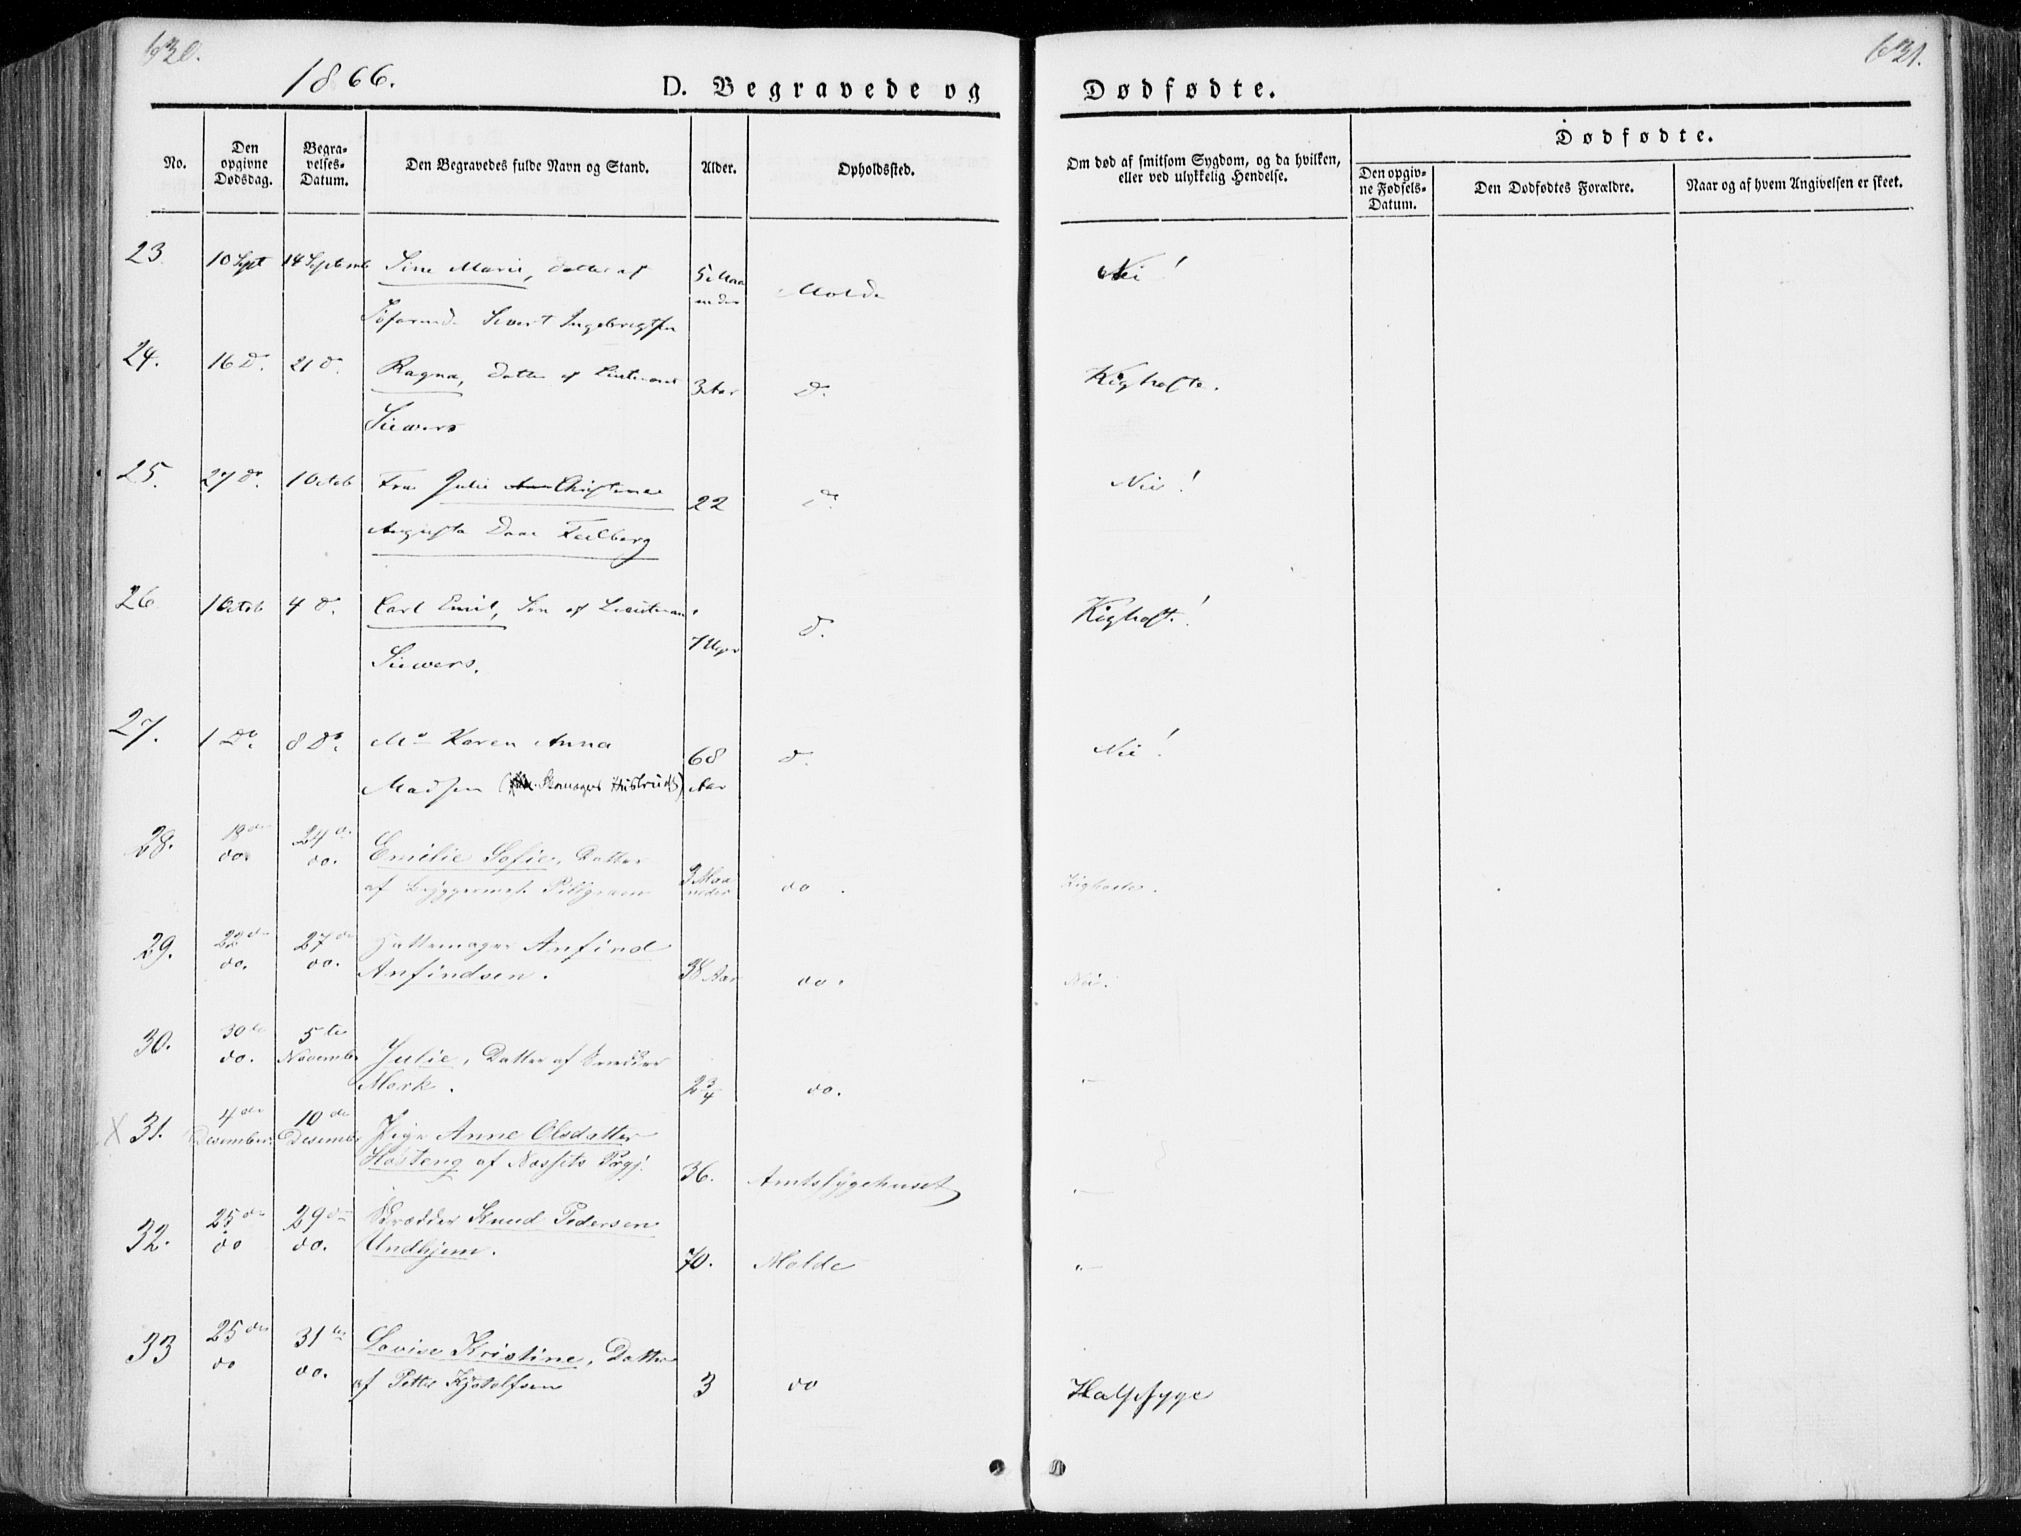 630.
631.
1866.
D. Begravede og Dødfødte.
No.
Den opgivne Dødsdag.
Begravelses-Datum.
Den Begravedes fulde Navn og Stand.
Alder.
Opholdssted.
Om død af smitsom Sygdom, og da hvilken,
eller ved ulykkelig Hendelse.
Dødfødte.
Den opgivne Fødsels-Datum.
Den Dødfødtes Forældre.
Naar og af hvem Angivelsen er skeet.
23. 10 Sept 14 Septemb Sine Marie, Datter af 5 Maa Nei!
neder Molde
Søfarende Sivert Ingebrigtsen
24. 16 D. 21 d. Ragna, Datter af Lieutenant 3 Aar D. Kighoste.
Siewers
25. 27 do. 1 Octob Frue Julie Christense 22 do Nei!
Augusta Daae Feilberg
26 1 Octob 4 d. Carl Emil, Søn af Lieutenant d. Kighost!
Siewers. 7 Uger
27. 1 Do. 8 Do. Karen Anna 68 d. Nei!
Madsen (Skomagers Hustrue) Aar
28. 18de do. 24de do. Emilie Sofie, Datter
af Pillgram 3 Maaneder do. Kighoste.
29. 22de do. 27de do. Hattemager Anfind
Anfindsen. 38 Aar do. Nei.
30. 30te do. 5te November Julie, Datter af
Mork. 2 3/4 do. "
X 31. 4de Desember 10de Desember Pige Anne Olsdatter
af Nessets Prgj. 36. Amtssygehuset "
32. 25de do 29de do. Knud Pedersen
Undhjem. 70. Molde "
33 25de do 31te do. Lovise Kristine, Datter
af Petter 3 do Halssyge